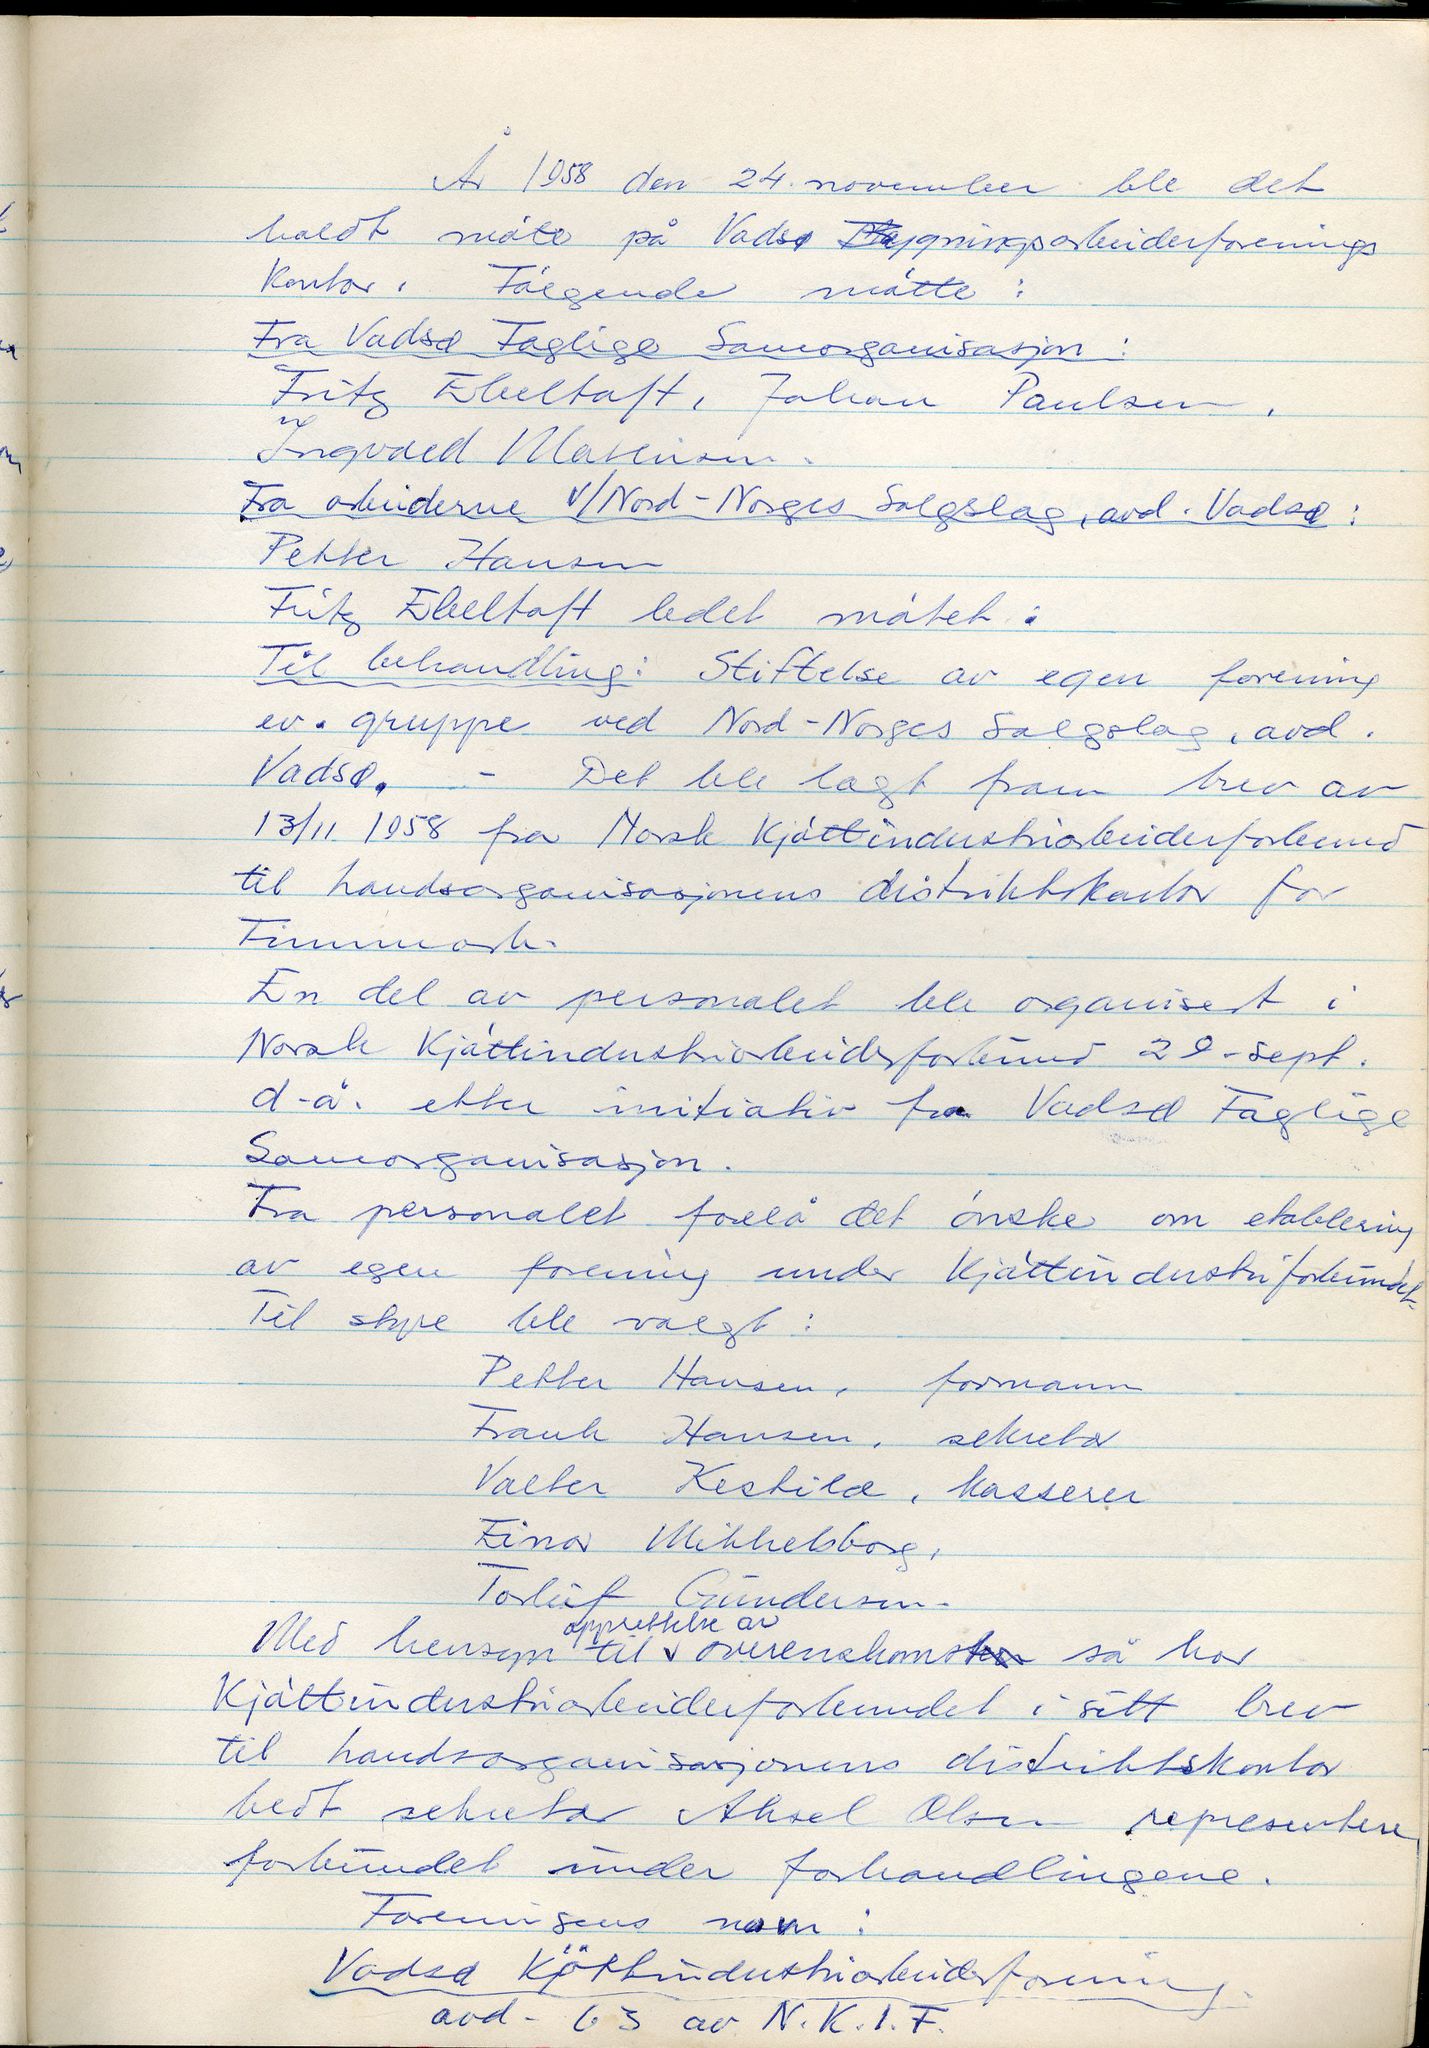 År 1958 den 24. november ble det
holdt møte på Vadsø Bygningsarbeiderforenings
Kontor. Følgende møtte:
Fra Vadsø Faglige Samorganisasjon:
Fritz Ebeltoft, Johan Paulsen,
Ingvald Mathisen.
Fra arbeiderne v/Nord-Norges Salgslag, avd. Vadsø:
Petter Hansen
Fritz Ebeltoft ledet møtet.
Til behandling: Stiftelse av egen forening
ev. gruppe ved Nord-Norges Salgslag, avd.
Vadsø. - Det ble lagt fram brev av
13/11. 1958 fra Norsk Kjøttindustriarbeiderforbund
til landsorganisasjonens distriktskontor for
Finnmark.
En del av personalet ble organisert i
Norsk Kjøttindustriarbeiderforbund 29. sept.
d.å. etter initiativ fra Vadsø Faglige
Samorganisasjon.
Fra personalet forelå det ønske om etablering
av egen forening under Kjøttindustriforbundet.
Til styre ble valgt:
Petter Hansen, formann
Frank Hansen, sekretær
Valter Keskild, kasserer
Einar Mikkelsborg,
Torleif Gundersen.
Med hensyn til opprettelse av overenskomst så har
Kjøttindustriarbeiderforbundet i sitt brev
til landsorganisasjonens distriktskontor
bedt sekretær Aksel Olsen representere
forbundet under forhandlingene.
Foreningens navn:
Vadsø Kjøttindustriarbeiderforening.
avd. 63 av N.K.I.F.